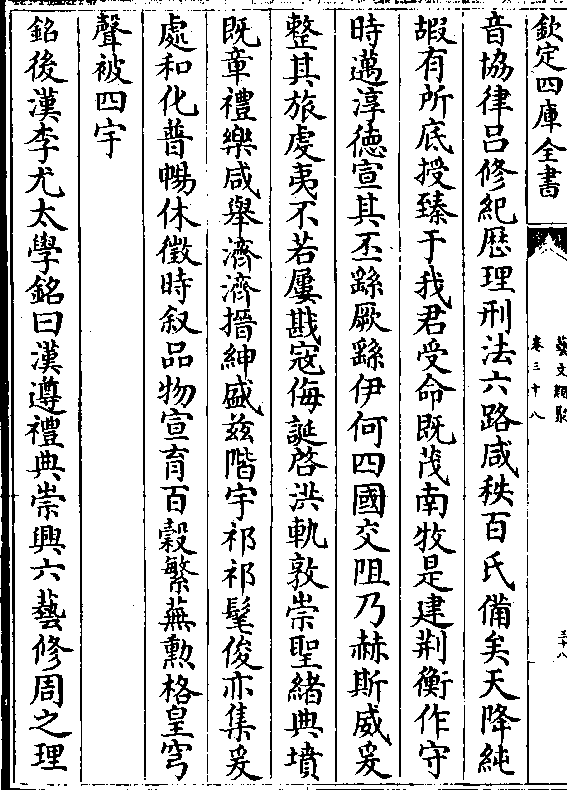 欽定四庫全書
藝文類聚
卷三十八
三十八
音協律呂修紀厯理刑法六路咸秩百氏備矣天降純
嘏有所底授臻于我君受命既茂南牧是建荆衡作守
時邁淳德宣其丕繇厥繇伊何四國交阻乃赫斯威爰
整其旅虔夷不若屢戡寇侮誕啓洪軌敦崇聖緒典墳
既章禮樂咸舉濟濟搢紳盛兹階宇祁祁髦俊亦集爰
處和化普暢休徵時叙品物宣育百糓繁蕪勲格皇穹
聲被四宇
銘後漢李尤太學銘曰漢遵禮典崇興六藝修周之理